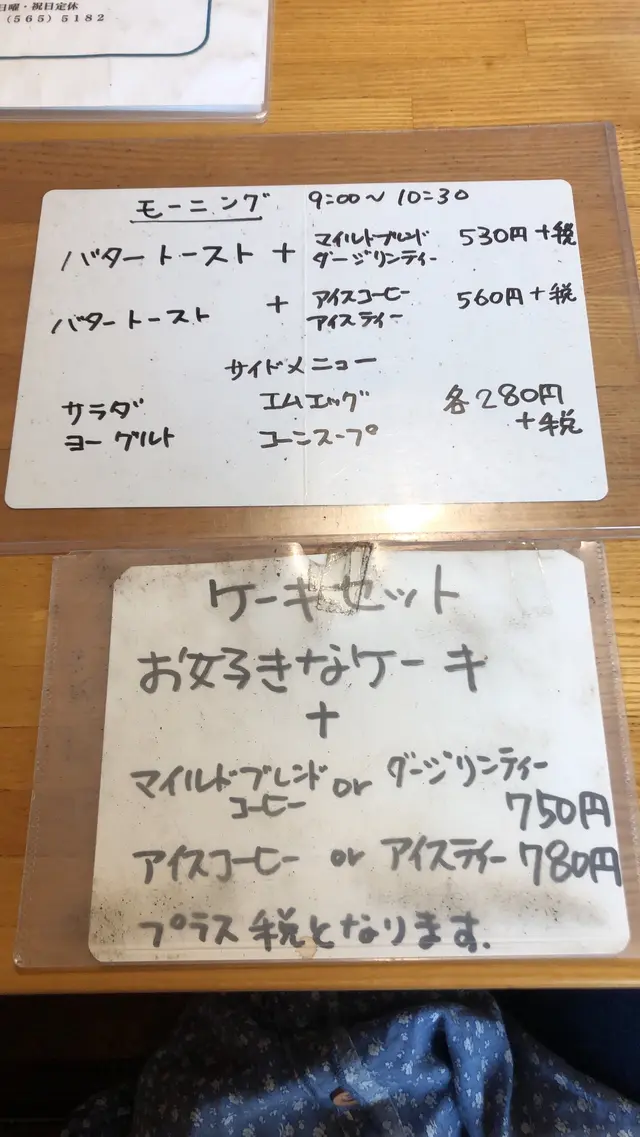 日曜・祝日定休
(565)5182
モーニング 9:00〜10:30
バタートースト + マイルドブレンド 530円+税
ダージリンティー
バタートースト + アイスコーヒー 560円+税
アイスティー
サイドメニュー
サラダ エムエッグ 各280円
ヨーグルト コーンスープ +税
ケーキセット
お好きなケーキ
+
マイルドブレンド or ダージリンティー
コーヒー 750円
アイスコーヒー or アイスティー 780円
プラス税となります.